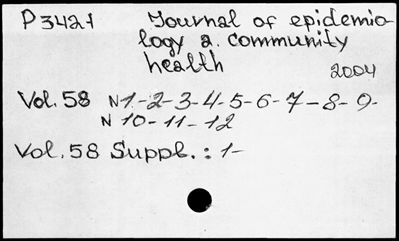 P 3421 Journal of epidemio-
logy a. community
health
2004
Vol. 58 N 1-2-3-4-5-6-7-8-9-
N 10-11-12
Vol. 58 Suppl. : 1-